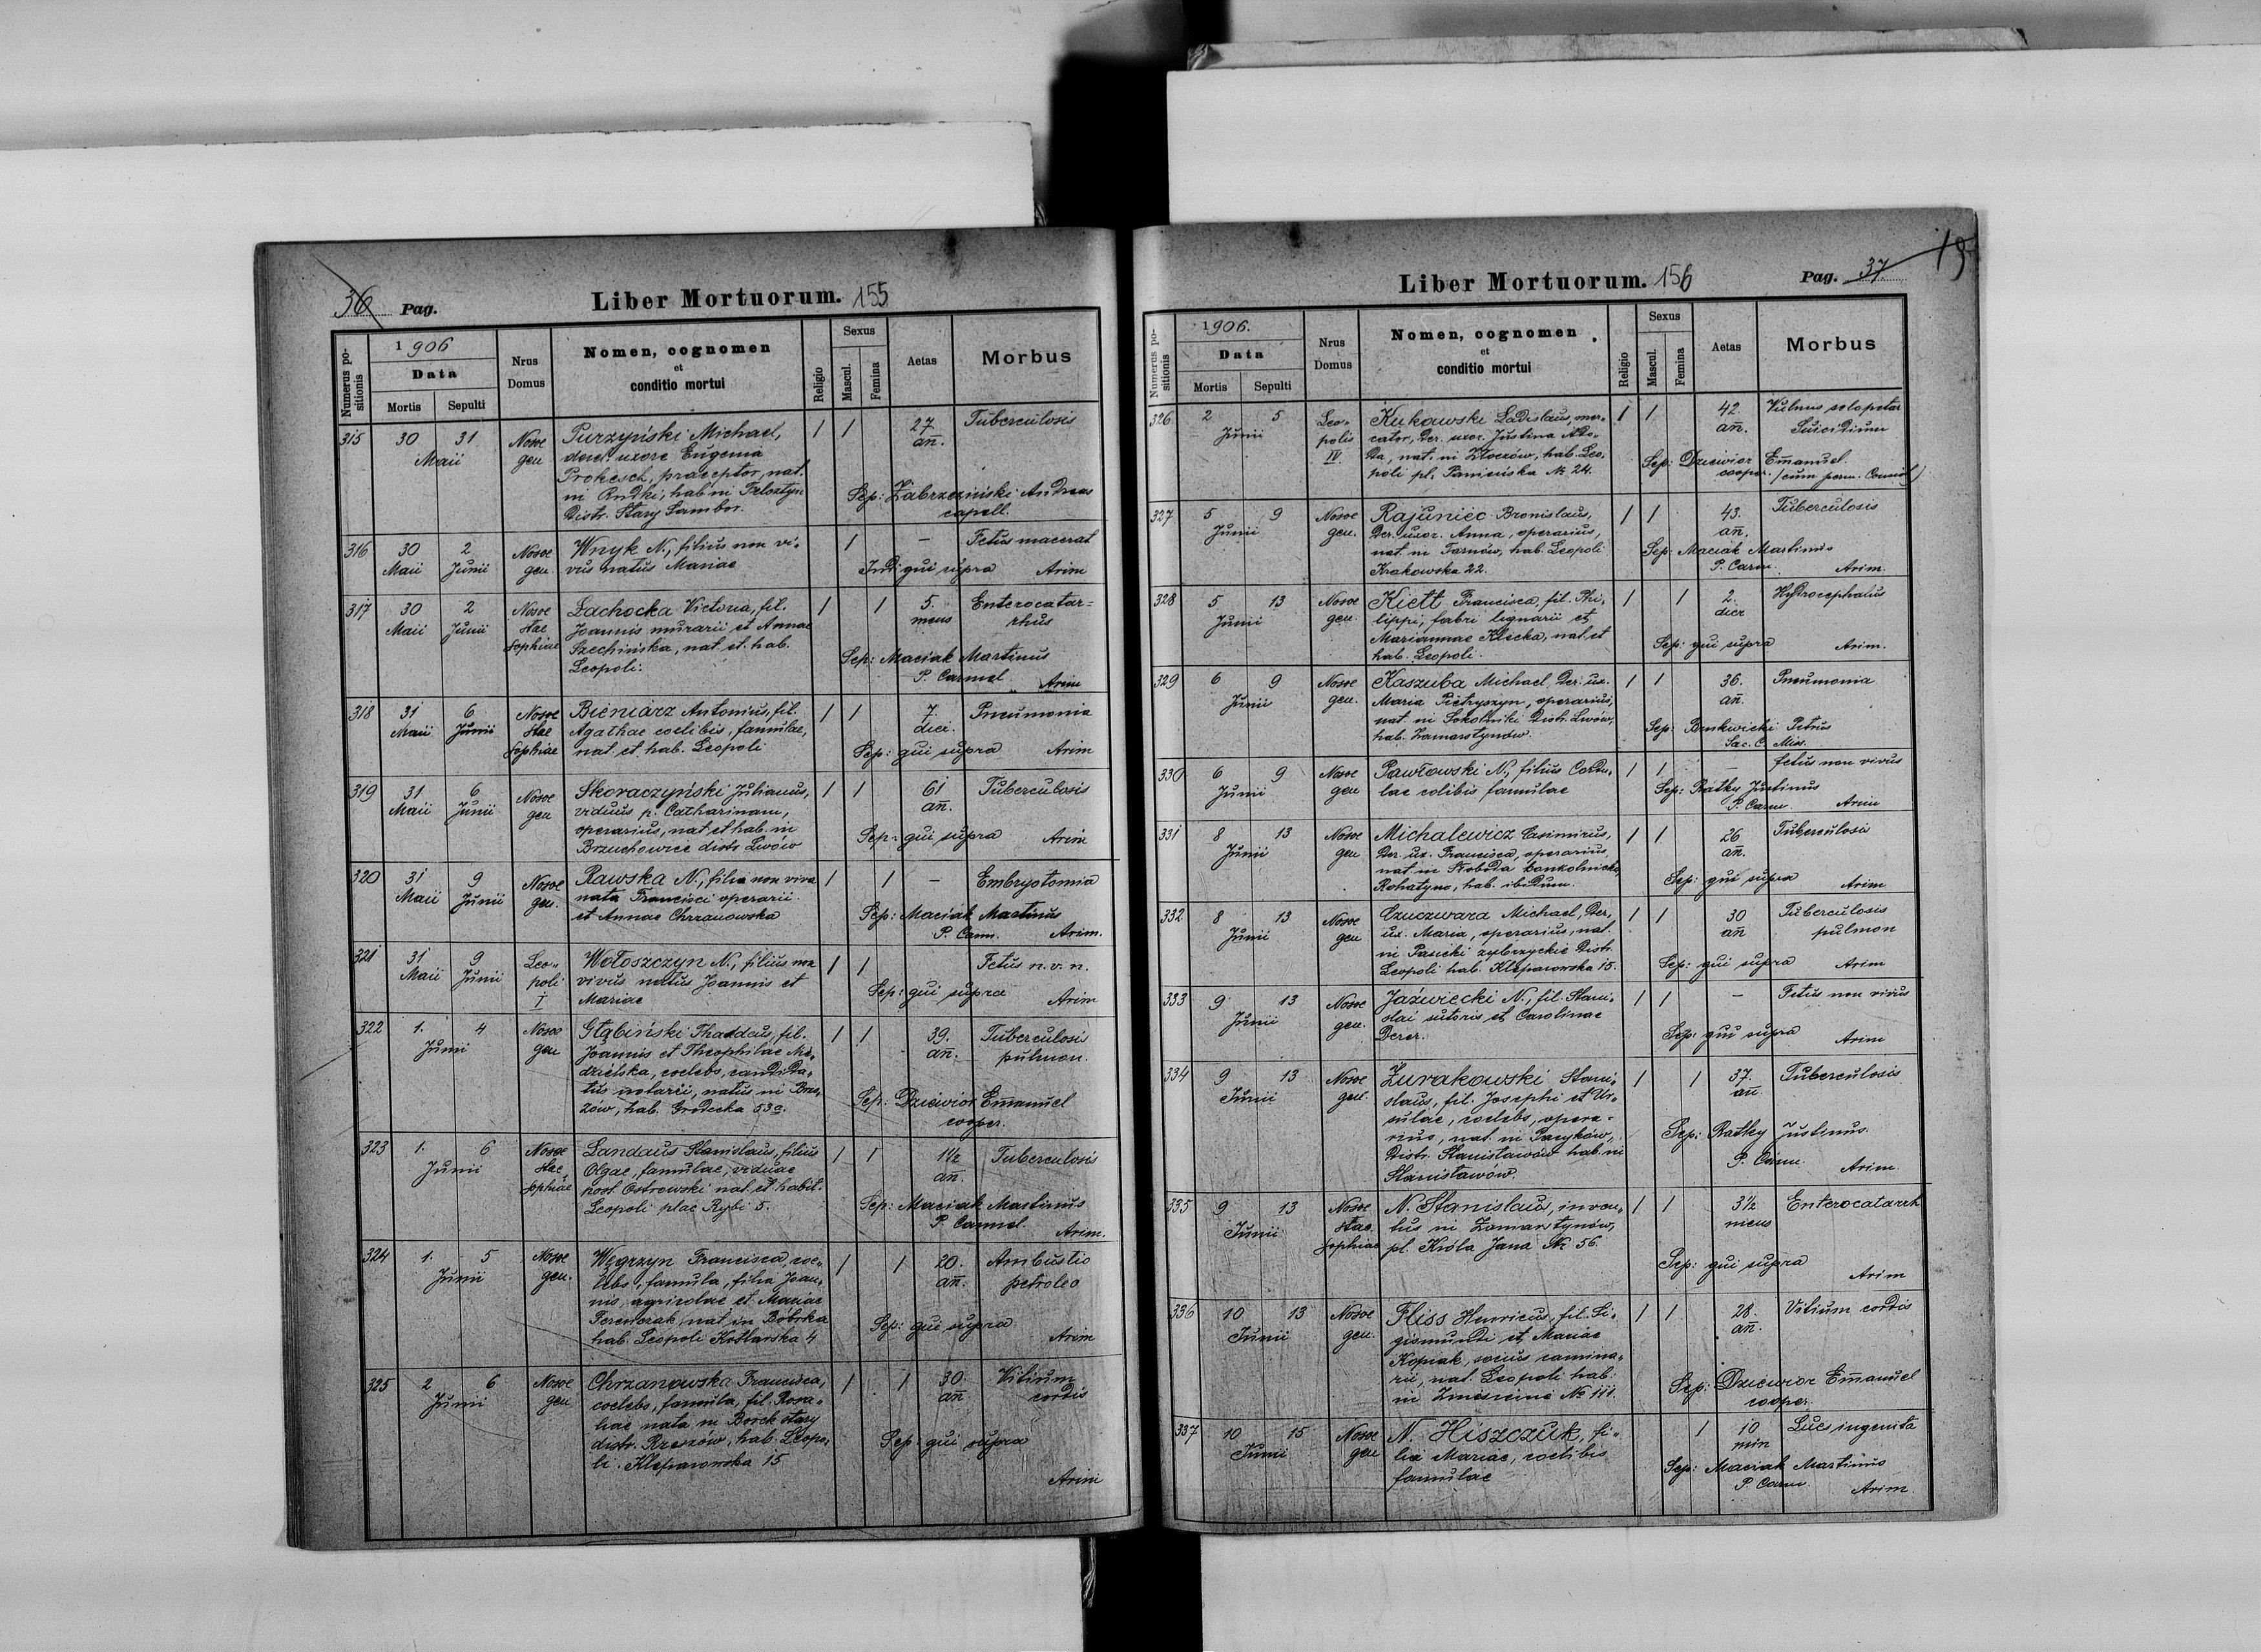 36 Pag.
Liber Mortuorum. 155
Numerus positionis
1906
Data
Mortis
Sepulti
Nrus Domus
Nomen, cognomen
et
conditio mortui
Religio
Sexus
Mascul.
Femina
Aetas
Morbus
315 30 31 Nosoc Purzyński Michael, / / 27 Tuberculosis
Maii gen derel. uxore Eugenia an.
Prokesch, praeceptor, nat.
in Rudki, hab in Felsztyn Sep: Zabrzeziński Andreas
Distr. Stary Sambor. capell.
316 30 2 Nosoc Wnyk N., filius non vi- / — Fetus macerat
Maii Junii gen vus natus Mariae qui supra Arim
317 30 2 Nosoc Lachocka Victoria, fil. / / 5. Enterocatar-
Maii Junii Stae Joannis murarii et Annae mens rhus
Sophiae Szechińska, nat. et. hab. Sep: Maciak Martinus
Leopoli. P. Carmel. Arim
318 31 6 Nosoc Bieniarz Antonius, fil. / / 7. Pneumonia
Maii Junii Stae Agathae coelibis, famulae, diei.
Sophiae nat. et hab. Leopoli Sep: qui supra Arim
319 31 6 Nosoc Skoraczyński Julianus, / / 61 Tuberculosis
Maii Junii gen viduus p. Catharinam, an.
operarius, nat. et hab. in Sep: qui supra Arim
Brzuchowice distr. Lwów
320 31 9 Nosoc Rawska N., filia non viva / / — Embryotomia
Maii Junii gen. nata Francisci operarii
et Annae Chrzanowska Sep: Maciak Martinus
P. Carm. Arim.
321 31 9 Leo- Wołoszczyn N., filius non / / Fetus n. v. n.
Maii Junii poli vivus natus Joannis et Sep: qui supra
I Mariae Arim
322 1. 4 Nosoc Głąbiński Thaddeus, fil. / / 39. Tuberculosis
Junii gen Joannis et Theophilae Nie- an. pulmon.
dzielska, coelebs, candida-
tus notarii, natus in Brze- Sep: Dzieiwior Emanuel
zów, hab. Grodecka 53a. cooper.
323 1. 6 Nosoc Landaus Stanislaus, filius / / 1 1/2 Tuberculosis
Junii Stae Olgae, famulae, viduae an.
Sophiae post Ostrowski nat. et habit. Sep: Maciak Martinus
Leopoli plac Rybi 5. P. Carmel. Arim.
324 1. 5 Nosoc Węgrzyn Francisca, coe- / / 20. Ambustio
Junii gen. lebs, famula, filia Joan- an. petroleo
nis, agricolae et Mariae
nat in Bóbrka Sep: qui supra
hab. Leopoli Kotlarska 4 Arim
325 2 6 Nosoc Chrzanowska Francisca, / / 30 Vitium
Junii gen coelebs, famula, fil. Rosa- an cordis
liae nata in Borek stary
distr. Rzeszów, hab. Leopo- Sep: qui supra
li. Kleparowska 15 Arim
Liber Mortuorum. 156
Pag. 37
Numerus positionis
1906.
Data
Mortis
Sepulti
Nrus Domus
Nomen, cognomen
et
conditio mortui
Religio
Sexus
Mascul.
Femina
Aetas
Morbus
326 2 5 Leo- Kukawski Ladislaus, mer- / / 42. Vulnus sclopetar
Junii polis cator, der. uxor. Justina an. Suicidium
IV. nat. in Złoczów, hab. Leo- Sep: Dzieiwior Emanuel
poli pl. № 24. cooper.
327 5 9 Nosoc Rajuniec Bronislaus, / / 43. Tuberculosis
Junii gen. Der. uxor. Anna, operarius, an.
nat. in Tarnów, hab. Leopoli Sep: Maciak Martinus
Krakowska 22. P. Carm. Arim.
328 5 13 Nosoc Kiett Francisca, fil. Phi- / / 2. Hydrocephalus
Junii gen. lippi, fabri lignarii et dier
Mariannae Klecka, nat. et Sep: qui supra Arim.
hab. Leopoli.
329 6 9 Nosoc Kaszuba Michael Der. ux. / / 36. Pneumonia
Junii gen. Maria Pietryszyn, operarius, an.
nat. in Sokolniki Distr. Lwów, Sep: Petrus
hab. Zamarstynów. Sac. C. Miss.
330 6 9 Nosoc Pawłowski N., filius Cordu- / / — fetus non vivus
Junii gen lae colibis famulae Sep: Ratky Justinus
P. Carm. Arim
331 8 13 Nosoc Michalewicz Casimirus, / / 26 Tuberculosi
Junii gen Der. ux. Francisca, operarius, an.
nat in Słoboda Sep: qui supra
Rohatyno, hab. ibidum. Arim
332 8 13 Nosoc Czuczwara Michael, Der, / / 30 Tuberculosis
Junii gen ux. Maria, operarius, nat. an pulmon
in Pasieki zybrzyckie Distr. Sep: qui supra Arim
Leopoli hab. Kleparowska 15.
333 9 13 Nosoc Jaźwiecki N., fil. Stani- / / — Fetus non vivus
Junii gen. slai sutoris et Carolinae Sep: qui supra
Derer. Arim
334 9 13 Nosoc Żurakowski Stani- / / 37. Tuberculosis
Junii gen. slaus, fil. Josephi et Ur- an.
sulae, coelebs, opera-
rius, nat. in Pacyków, Sep: Ratky Justinus
Distr. Stanisławów hab. in P. Carm. Arim.
Stanisławów.
335 9 13 Nosoc N. Stanislaus, inven- / / 3 1/2 Enterocatarrh
Junii Stae. tus in Zamarstynów, mens
Sophiae pl. Króla Jana № 56. Sep: qui supra
Arim
336 10 13 Nosoc Fliss Henricus, fil. Si- / / 28. Vitium cordis
Junii gen. gismundi et Mariae an.
Kopiak, socius camina-
rii, nat. Leopoli hab. Sep: Dzieiwior Emanuel
in Zniesienie № 111. cooper.
337 10 15 Nosoc N. Hiszczuk, fi- / 10 Lues ingenita
Junii gen lia Mariae, coelibis min
famulae Sep: Maciak Martinus
P. Carm. Arim.